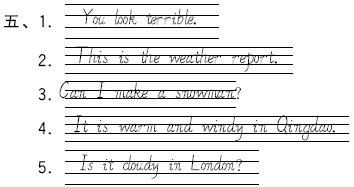 五、1. You look terrible.
2. This is the weather report.
3. Can I make a snowman?
4. It is warm and windy in Qingdao.
5. Is it cloudy in London?